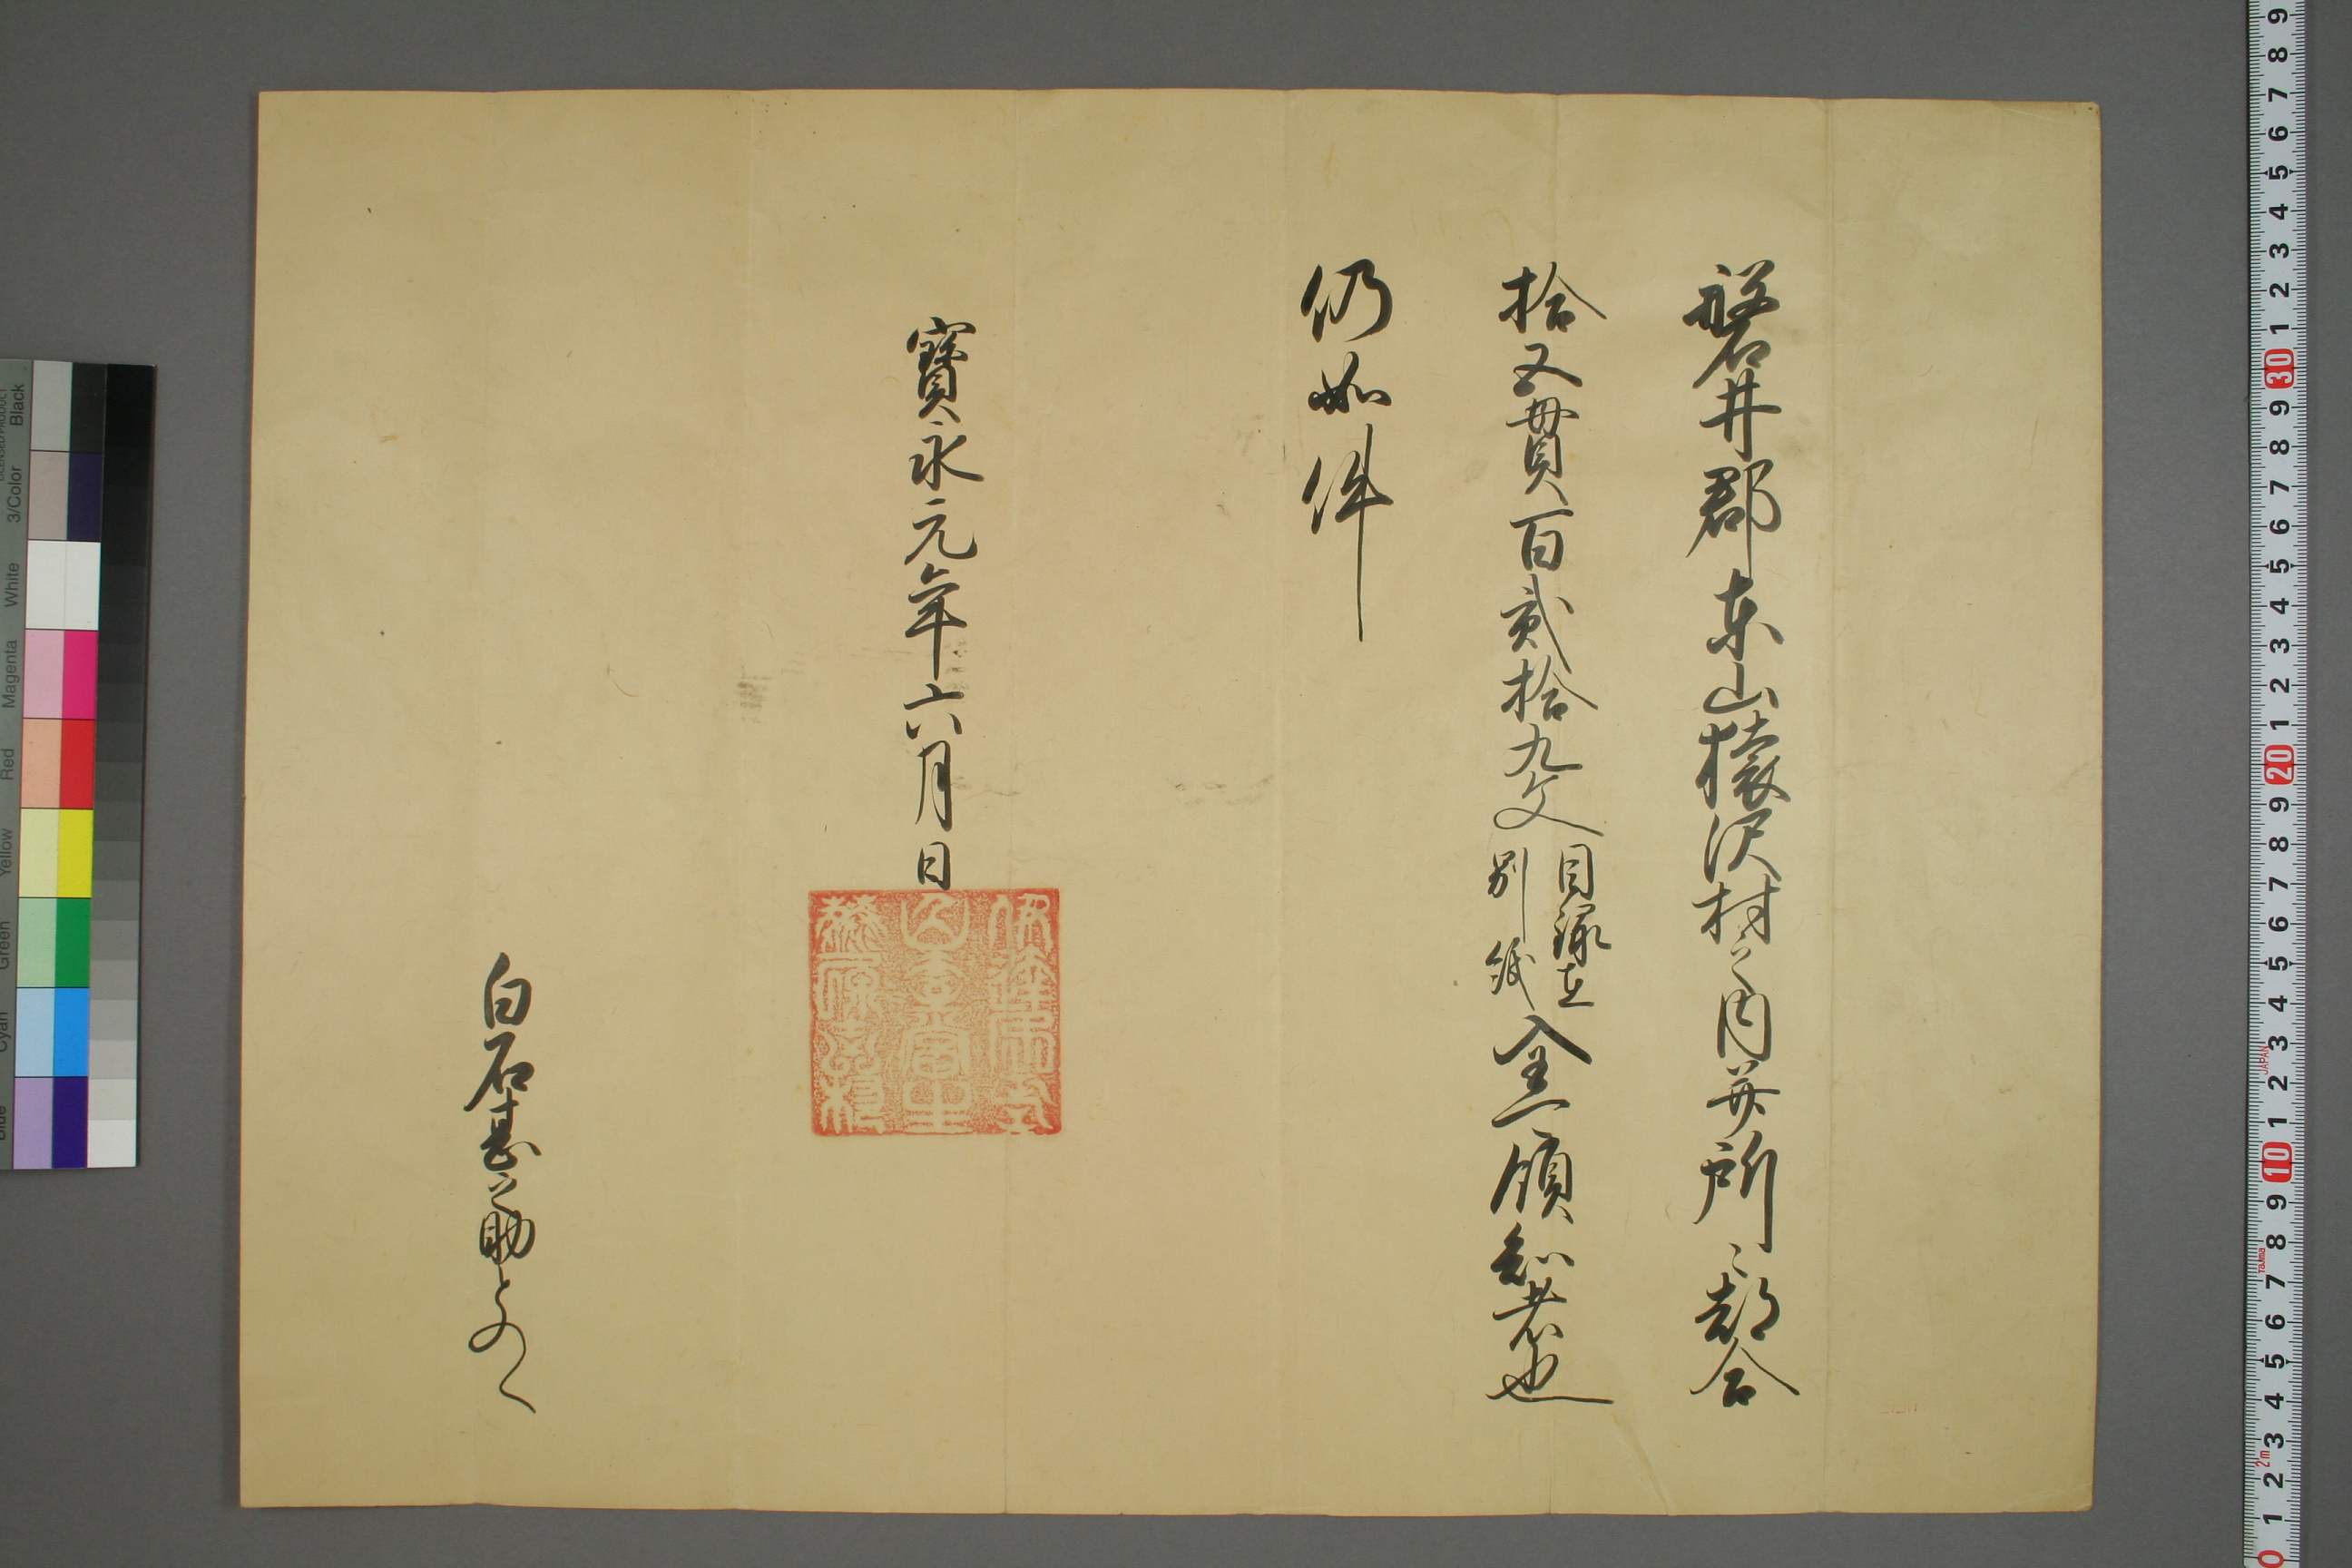 磐井郡東山猿沢村之内并所々都合
拾五貫百貳拾九文 目録在別紙 全可領知者也
仍如件
寳永元年六月日
白石甚之助とのへ
Black
3/Color
White
Magenta
Red
Yellow
Green
Cyan
Blue
JAPAN
TaJIma
2m
9 8 7 6 5 4 3 2 1 30 9 8 7 6 5 4 3 2 1 20 9 8 7 6 5 4 3 2 1 10 9 8 7 6 5 4 3 2 1 0